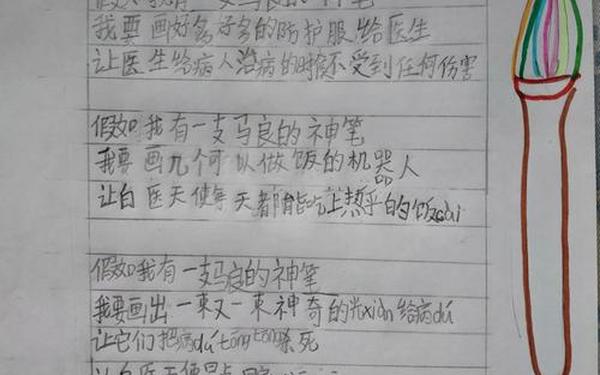 假如我有一支马良的神笔
我要画好多好多的防护服给医生
让医生给病人治病的时候不受到任何伤害
假如我有一支马良的神笔
我要画几个可以做饭的机器人
让白医天使每天都能吃上热乎的饭cài
假如我有一支马良的神笔
我要画出一束又一束神奇的光xiàn给病dú
让它们把病dú tōng tōng杀死